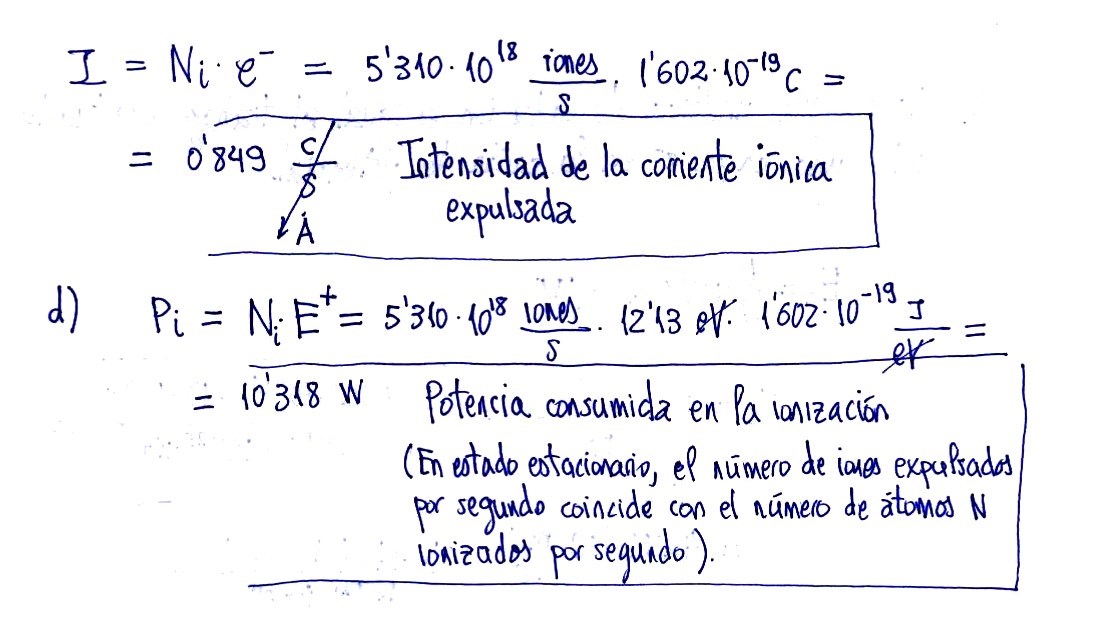 I = Ni · e⁻ = 5'310 · 10¹⁸ iones/s · 1'602 · 10⁻¹⁹ C =
= 0'849 C/s Intensidad de la corriente iónica
A expulsada
d) Pi = Ni E⁺ = 5'310 · 10¹⁸ iones/s · 12'13 eV · 1'602 · 10⁻¹⁹ J/eV =
= 10'318 W Potencia consumida en la ionización
(En estado estacionario, el número de iones expulsados
por segundo coincide con el número de átomos N
ionizados por segundo).